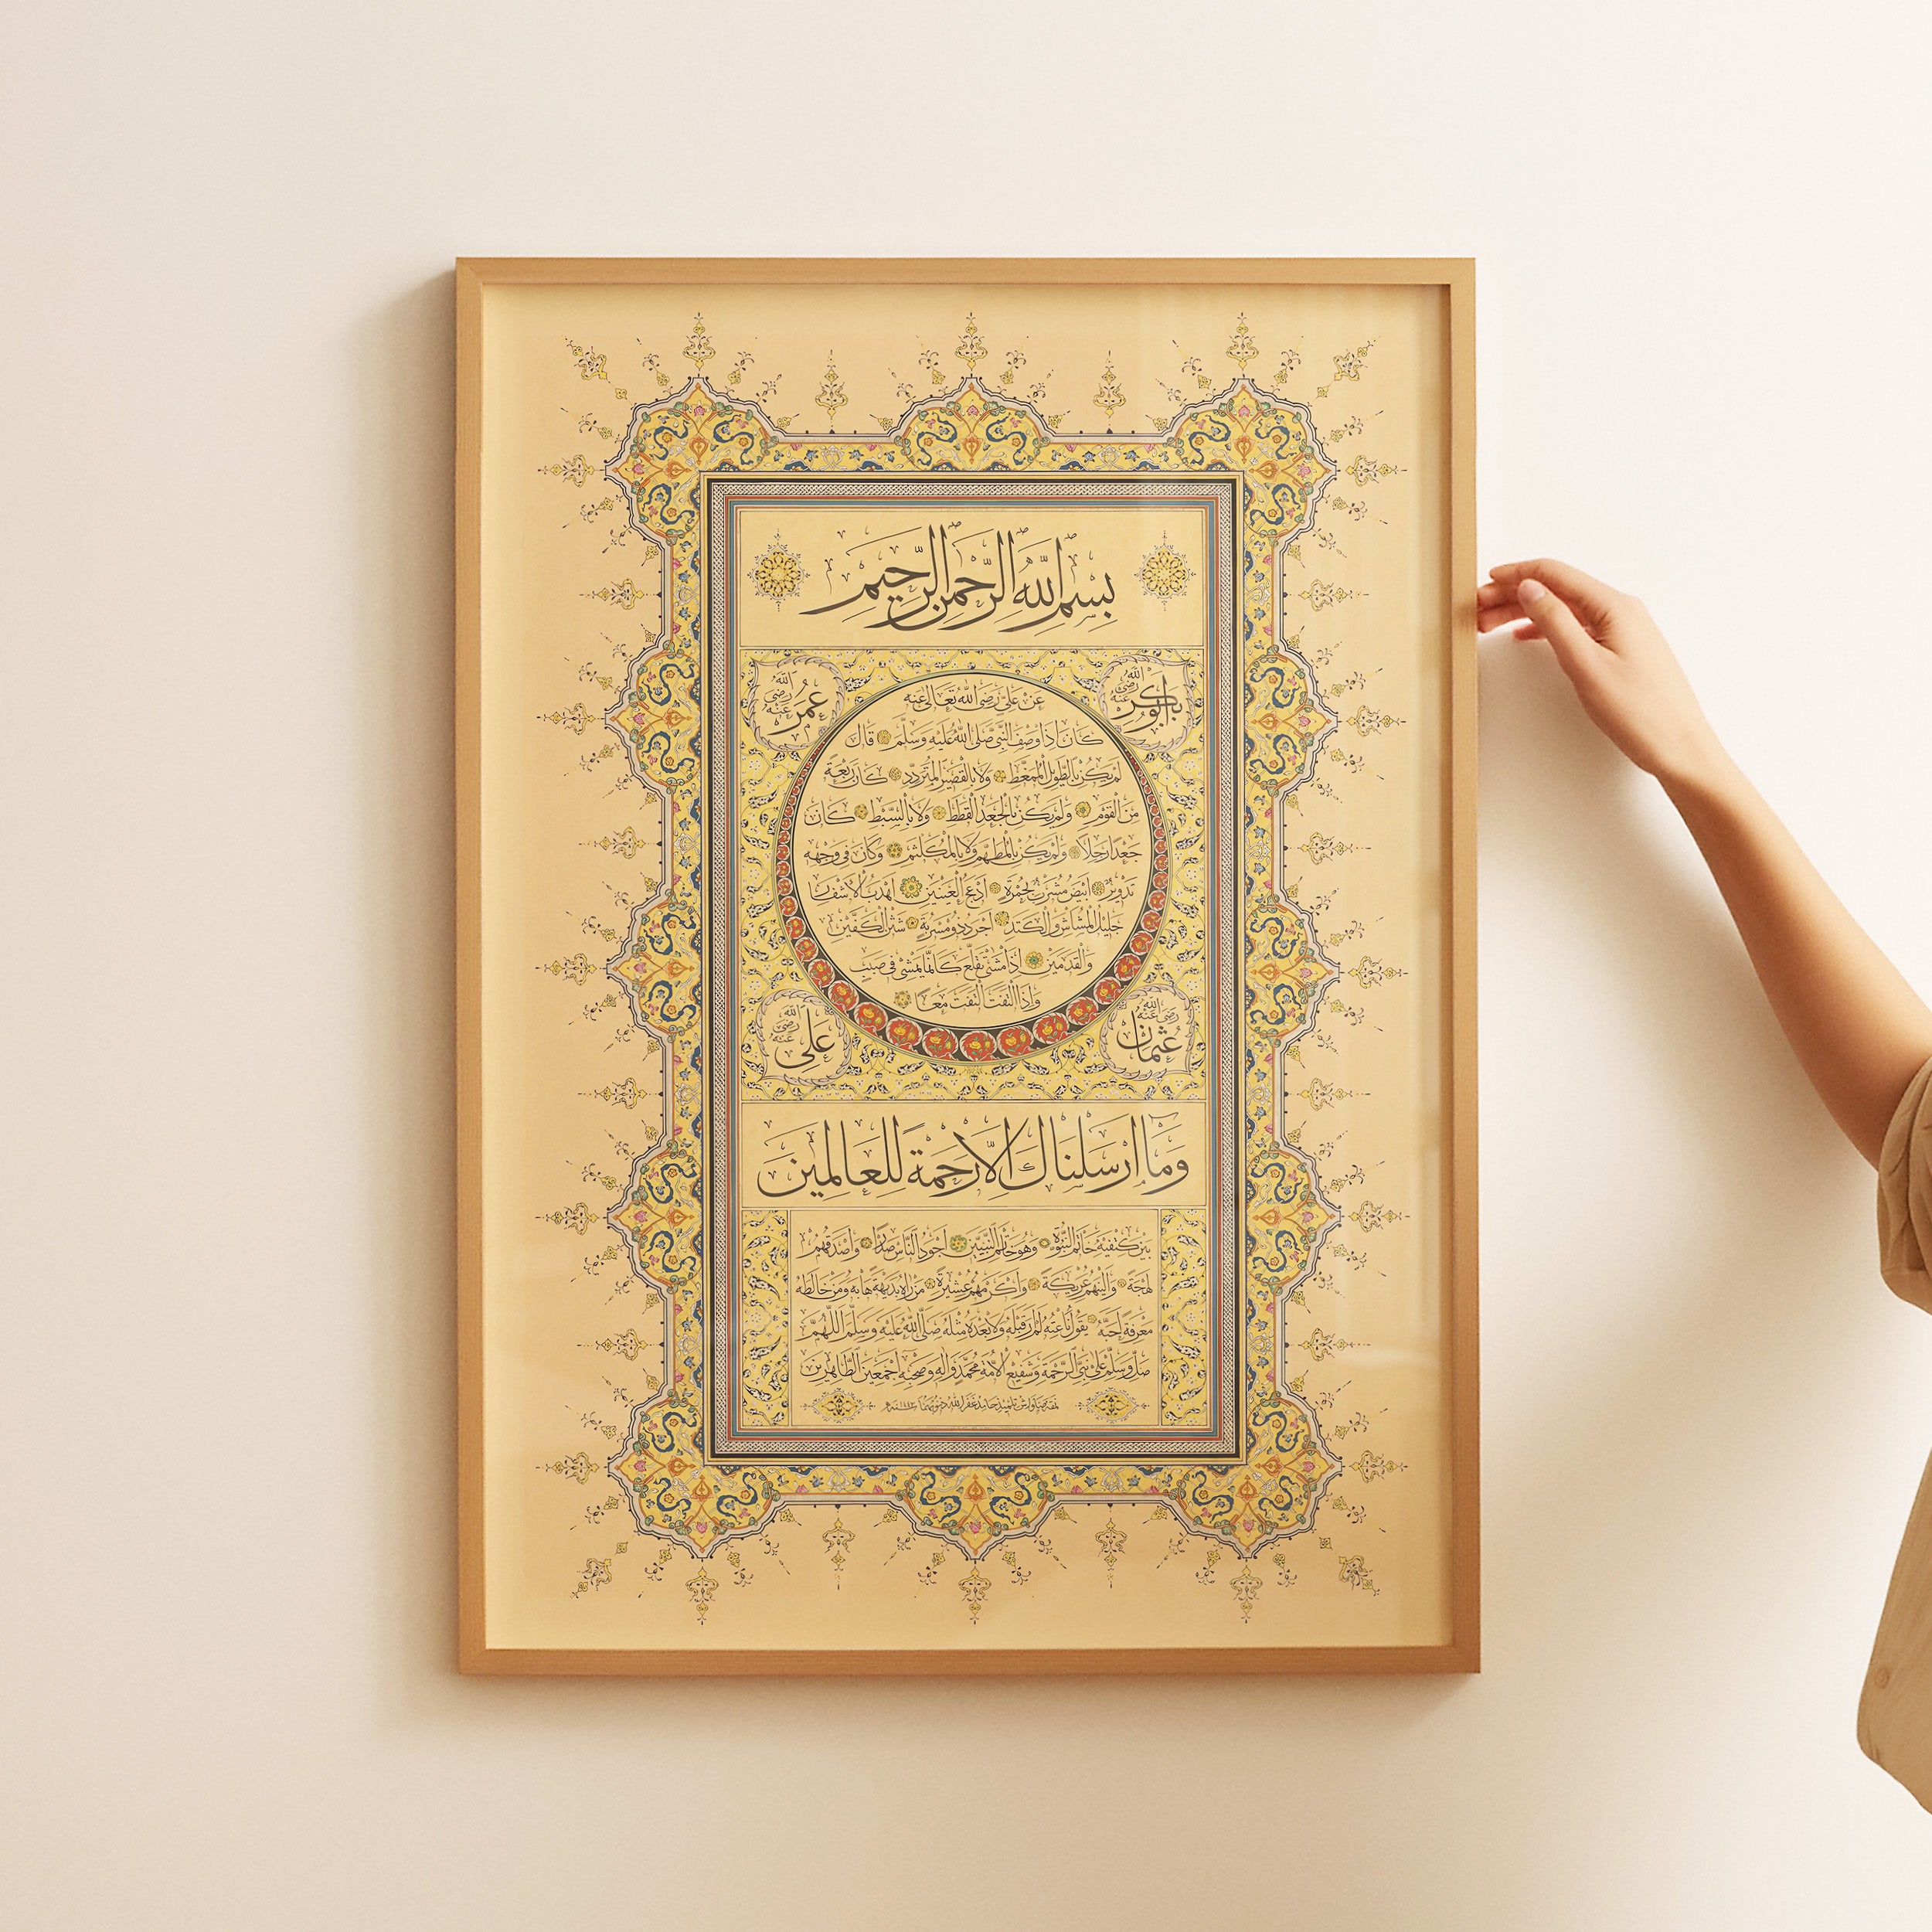 بسم الله الرحمن الرحيم
ابوبكر رضي الله عنه
عمر رضي الله عنه
عن علي رضي الله تعالى عنه
كان اذا وصف النبي صلى الله عليه وسلم قال
لم يكن بالطويل الممغط ولا بالقصير المتردد كان ربعة
من القوم ولم يكن بالجعد القطط ولا بالسبط كان
جعدا رجلا ولم يكن بالمطهم ولا بالمكلثم وكان في وجهه
تدوير ابيض مشرب بحمرة ادعج العينين اهدب الاشفار
جليل المشاش والكتد اجرد ذو مسربة شثن الكفين
والقدمين اذا مشى تقلع كانما يمشي في صبب
واذا التفت التفت معا
عثمان رضي الله عنه
علي رضي الله عنه
وما ارسلناك الا رحمة للعالمين
بين كتفيه خاتم النبوة وهو خاتم النبيين اجود الناس صدرا واصدقهم
لهجة والينهم عريكة واكرمهم عشيرة من رآه بديهة هابه ومن خالطه
معرفة احبه يقول ناعته لم ار قبله ولا بعده مثله صلى الله عليه وسلم اللهم
صل وسلم على نبي الرحمة وشفيع الامة محمد وآله وصحبه اجمعين الطاهرين
تلميذ حامد غفر الله ذنوبهما